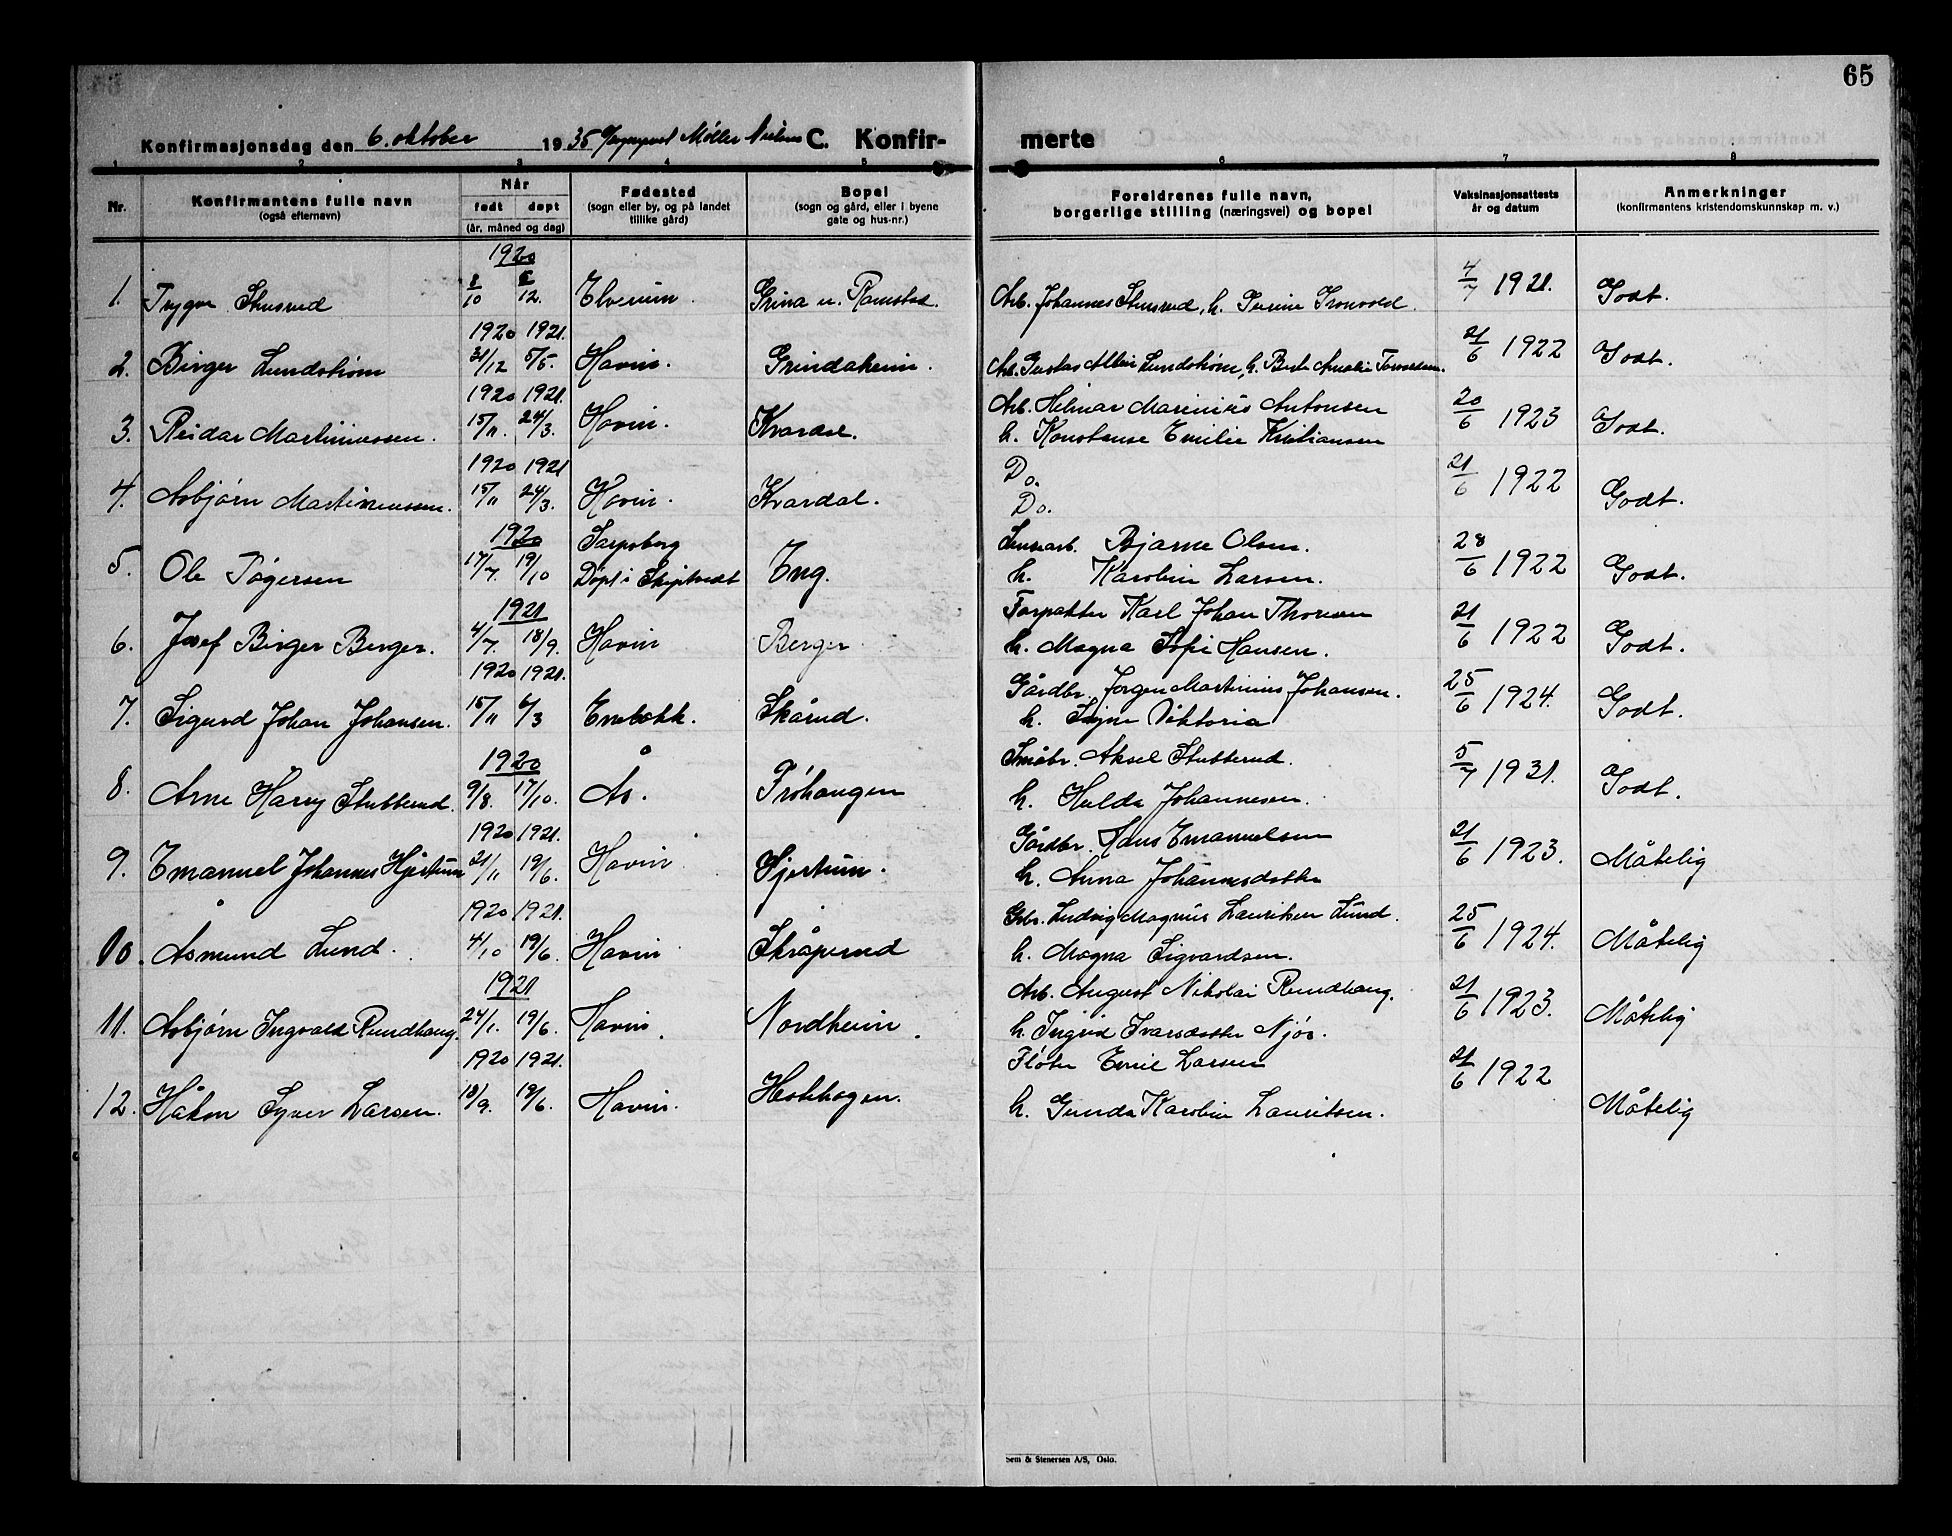 65
Konfirmasjonsdag den 6. oktober 1935 Møller C. Konfir- merte
1 2 3 4 5 6 7 8
Nr. Konfirmantens fulle navn (også efternavn) Når født døpt (år, måned og dag) Fødested (sogn eller by, og på landet tillike gård) Bopel (sogn og gård, eller i byene gate og hus-nr.) Foreldrenes fulle navn, borgerlige stilling (næringsvei) og bopel Vaksinasjonsattests år og datum Anmerkninger (konfirmantens kristendomskunnskap m. v.)
1920
1. Trygve 8/10 12. Elverum Grina u. Ramstad. Arb. Johannes h. 4/7 1921. Godt.
1920 1921.
2. Birger Lundstrøm 31/12 5/5. Hovin. Grindaheim. Arb. Gustav Albin Lundstrøm, h. 21/6 1922 Godt.
1920 1921.
3. Reidar Martiniussen. 15/11 24/3. Hovin. Kvardal. Arb. Hilmar Marinius Antonsen
h. Konstanse Emilie Kristiansen 20/6 1923 Godt.
1920 1921
4. Asbjørn Martiniussen. 15/11 24/3. Hovin. Kvardal. Do.
Do. 21/6 1922 Godt.
1920
5. Ole Tøgersen 17/7. 19/10 Sarpsborg
Døpt i Skiptvedt Eng. Bjarne Olsen.
h. Karoline Larsen. 28/6 1922 Godt.
1921
6. Josef Birger Berger. 4/7. 18/9. Hovin Berger. Forpakter Karl Johan Thoresen
h. Magna Sofi Hansen. 21/6 1922 Godt.
1920 1921.
7. Sigurd Johan Johansen. 15/11 6/3 Enebakk. Skårud. Gårdbr. Jørgen Martinius Johansen.
h. Signe Viktoria 25/6 1924. Godt.
1920
8. Arne Harry Stubberud. 9/8. 17/10. Ås. Tróhaugen Småbr. Aksel Stubberud.
h. Hulda Johannesen. 5/7 1921. Godt.
1920 1921.
9. Emanuel Johannes Hjertum 21/11 19/6. Hovin Hjertum. Gårdbr. Hans Emanuelsen
h. Anna Johannesdatter 21/6 1923. Måtelig
1920 1921.
10. Åsmund Lund. 4/10 19/6. Hovin Skråperud Gbr. Ludvig Magnus Lauritsen Lund.
h. Magna Sigvardsen. 25/6 1924. Måtelig
1921
11. Asbjørn Ingvald Rundhaug. 24/1. 19/6. Hovin. Nordheim. Arb. August Nikolai Rundhaug.
h. Ingrid Ivarsdatter Njøs. 21/6 1923. Måtelig
1920 1921.
12. Håkon Syver Larsen. 18/9. 19/6. Hovin. Hestehagen. Fløter Emil Larsen
h. Gunda Karoline Lauritsen. 21/6 1922 Måtelig
Sem & Stenersen A/S, Oslo.